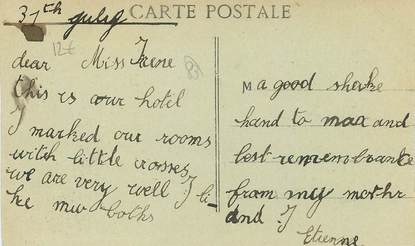 31th july
CARTE POSTALE
12t
dear Miss
this is our hotel
I marked our rooms
witch little crosses
we are very well I li-
ke muv boths
a good shake
hand to maa and
best remembrance
from my mothr
and I
Etienne